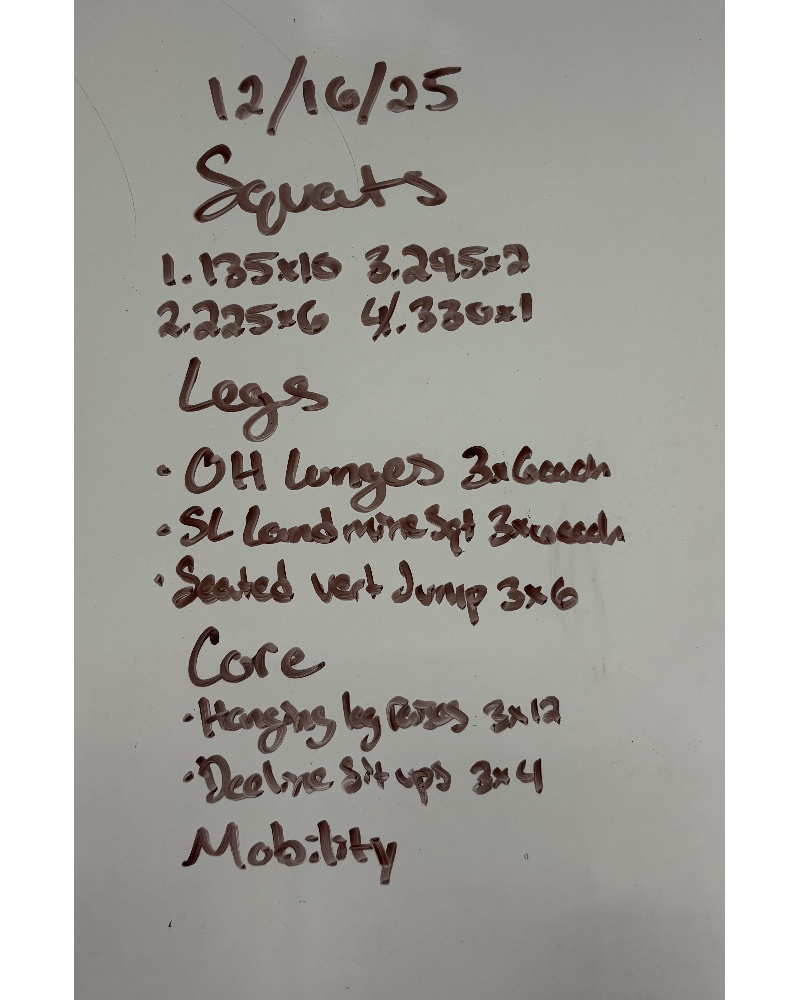 12/16/25
Squats
1. 135x10 3. 295x2
2. 225x6 4. 330x1
Legs
• OH Lunges 3x6each
• SL Landmine Sqt 3x each
• Seated vert Jump 3x6
Core
• Hanging leg raises 3x12
• Decline sit ups 3x4
Mobility